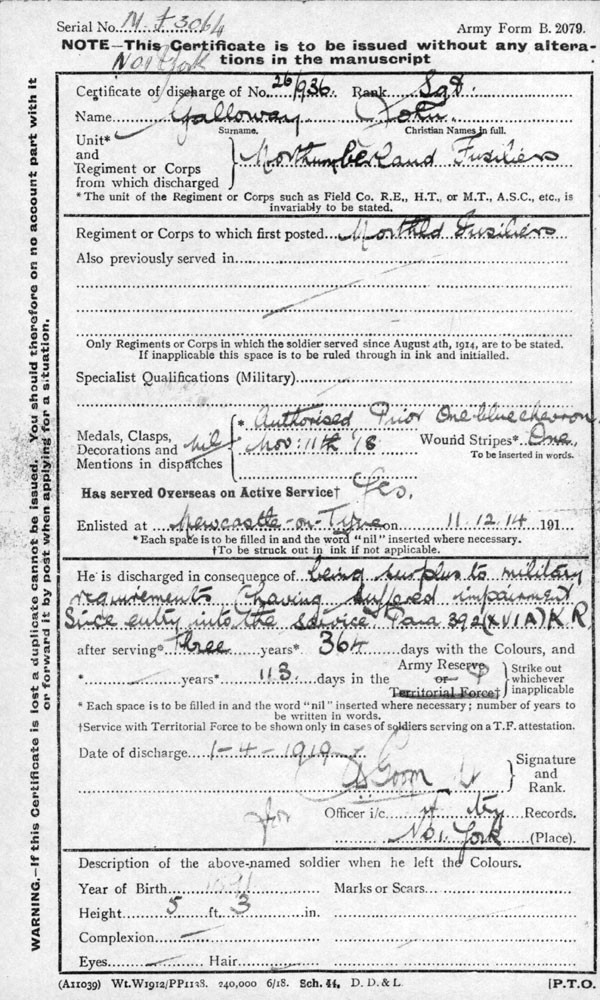 Serial No. M F 3064 Army Form B. 2079.
No 1 York
NOTE—This Certificate is to be issued without any altera-
tions in the manuscript
Certificate of discharge of No. 26/936 Rank Sgt.
Name Galloway John
Surname. Christian Names in full.
Unit*
and
Regiment or Corps
from which discharged
Northumberland Fusiliers
*The unit of the Regiment or Corps such as Field Co. R.E., H.T., or M.T., A.S.C., etc., is
invariably to be stated.
Regiment or Corps to which first posted Northld Fusiliers
Also previously served in
Only Regiments or Corps in which the soldier served since August 4th, 1914, are to be stated.
If inapplicable this space is to be ruled through in ink and initialled.
Specialist Qualifications (Military)
Medals, Clasps,
Decorations and
Mentions in dispatches
nil
* Authorised Prior One blue chevron
Nov: 11th '18 Wound Stripes* One.
To be inserted in words.
Has served Overseas on Active Service† Yes.
Enlisted at Newcastle-on-Tyne on 11.12.14 191
*Each space is to be filled in and the word "nil" inserted where necessary.
†To be struck out in ink if not applicable.
He is discharged in consequence of being surplus to military
requirements (having suffered impairment
Since entry into the service Para 392 (XVIA) K.R
after serving* three years* 364 days with the Colours, and
* years* 113 days in the
Army Reserve
or
Territorial Force†
Strike out
whichever
inapplicable
* Each space is to be filled in and the word "nil" inserted where necessary; number of years to
be written in words.
†Service with Territorial Force to be shown only in cases of soldiers serving on a T.F. attestation.
Date of discharge 1-4-1919
Lt
Signature
and
Rank.
for
Officer i/c Records.
No 1, York (Place).
Description of the above-named soldier when he left the Colours.
Year of Birth Marks or Scars
Height 5 ft. 3 in.
Complexion
Eyes Hair
(A11039) Wt.W1912/PP1128. 240,000 6/18. Sch. 44. D. D. & L. [P.T.O.
WARNING.—If this Certificate is lost a duplicate cannot be issued. You should therefore on no account part with it
or forward it by post when applying for a situation.